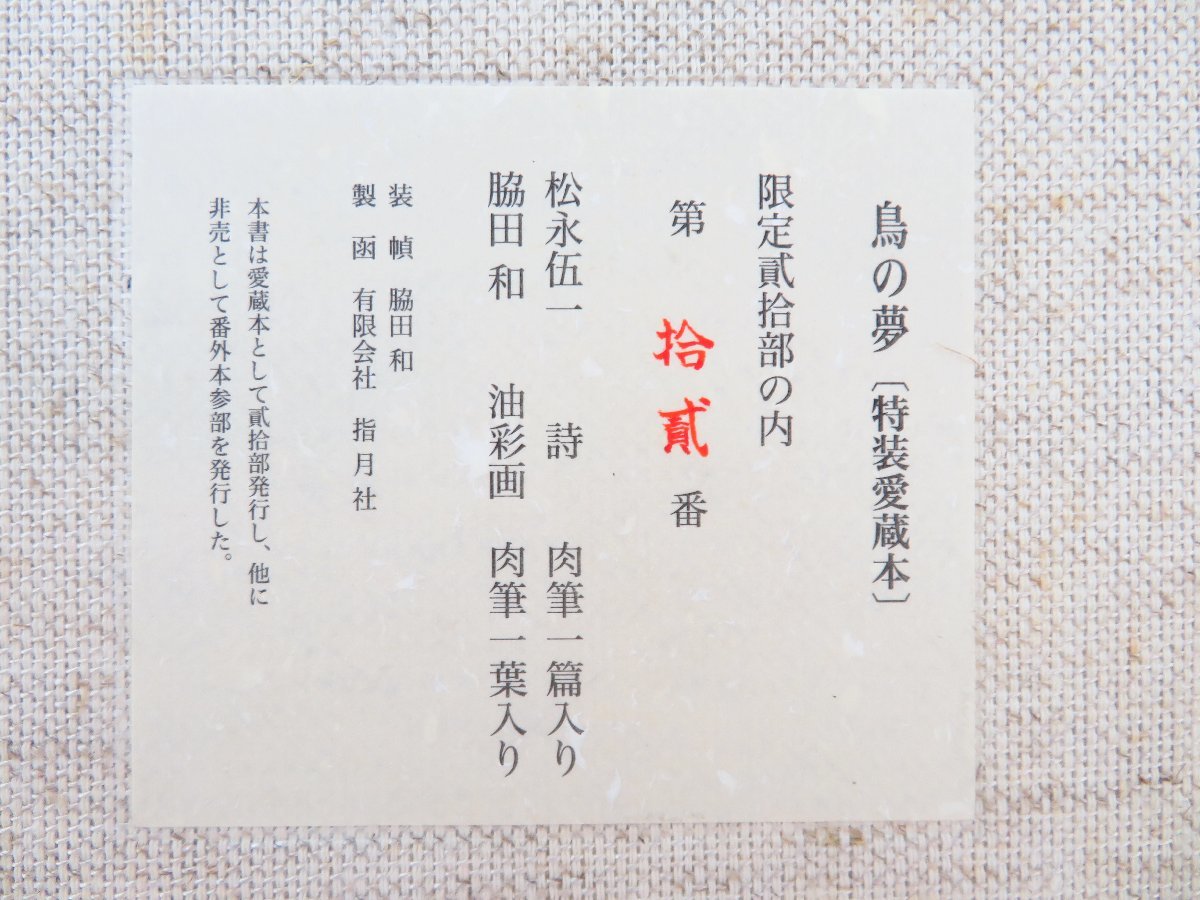 鳥の夢〔特装愛蔵本〕
限定貳拾部の内
第 拾貳 番
松永伍一 詩 肉筆一篇入り
脇田 和 油彩画 肉筆一葉入り
装 幀 脇田 和
製 函 有限会社 指月社
本書は愛蔵本として貳拾部発行し、他に
非売として番外本参部を発行した。